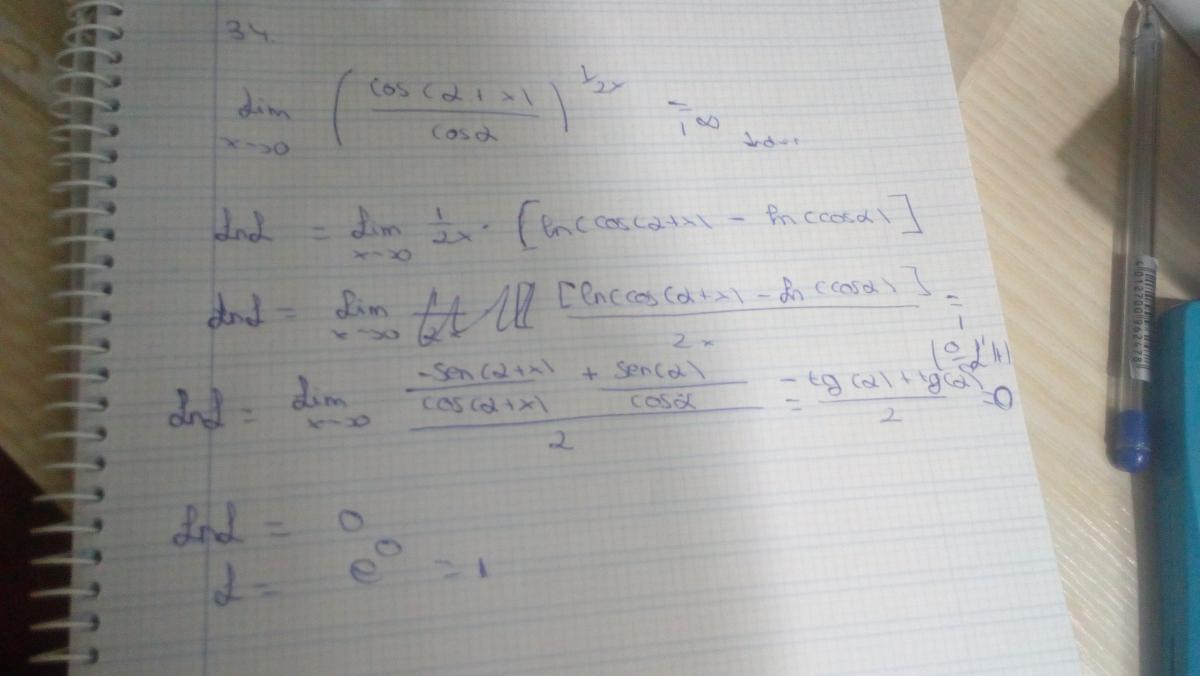 34.
lim x→0 ( cos(2+x) / cos2 )^1/2x = 1^∞
LnL = lim x→0 1/2x · [ln(cos(2+x) - ln(cos2)]
LnL = lim x→0 [ln(cos(2+x) - ln(cos2)] / 2x =
(0/0) L'H
LnL = lim x→0 -sen(2+x)/cos(2+x) + sen(2)/cos2 / 2 = -tg(2)+tg(2) / 2 = 0
LnL = 0
L = e^0 = 1